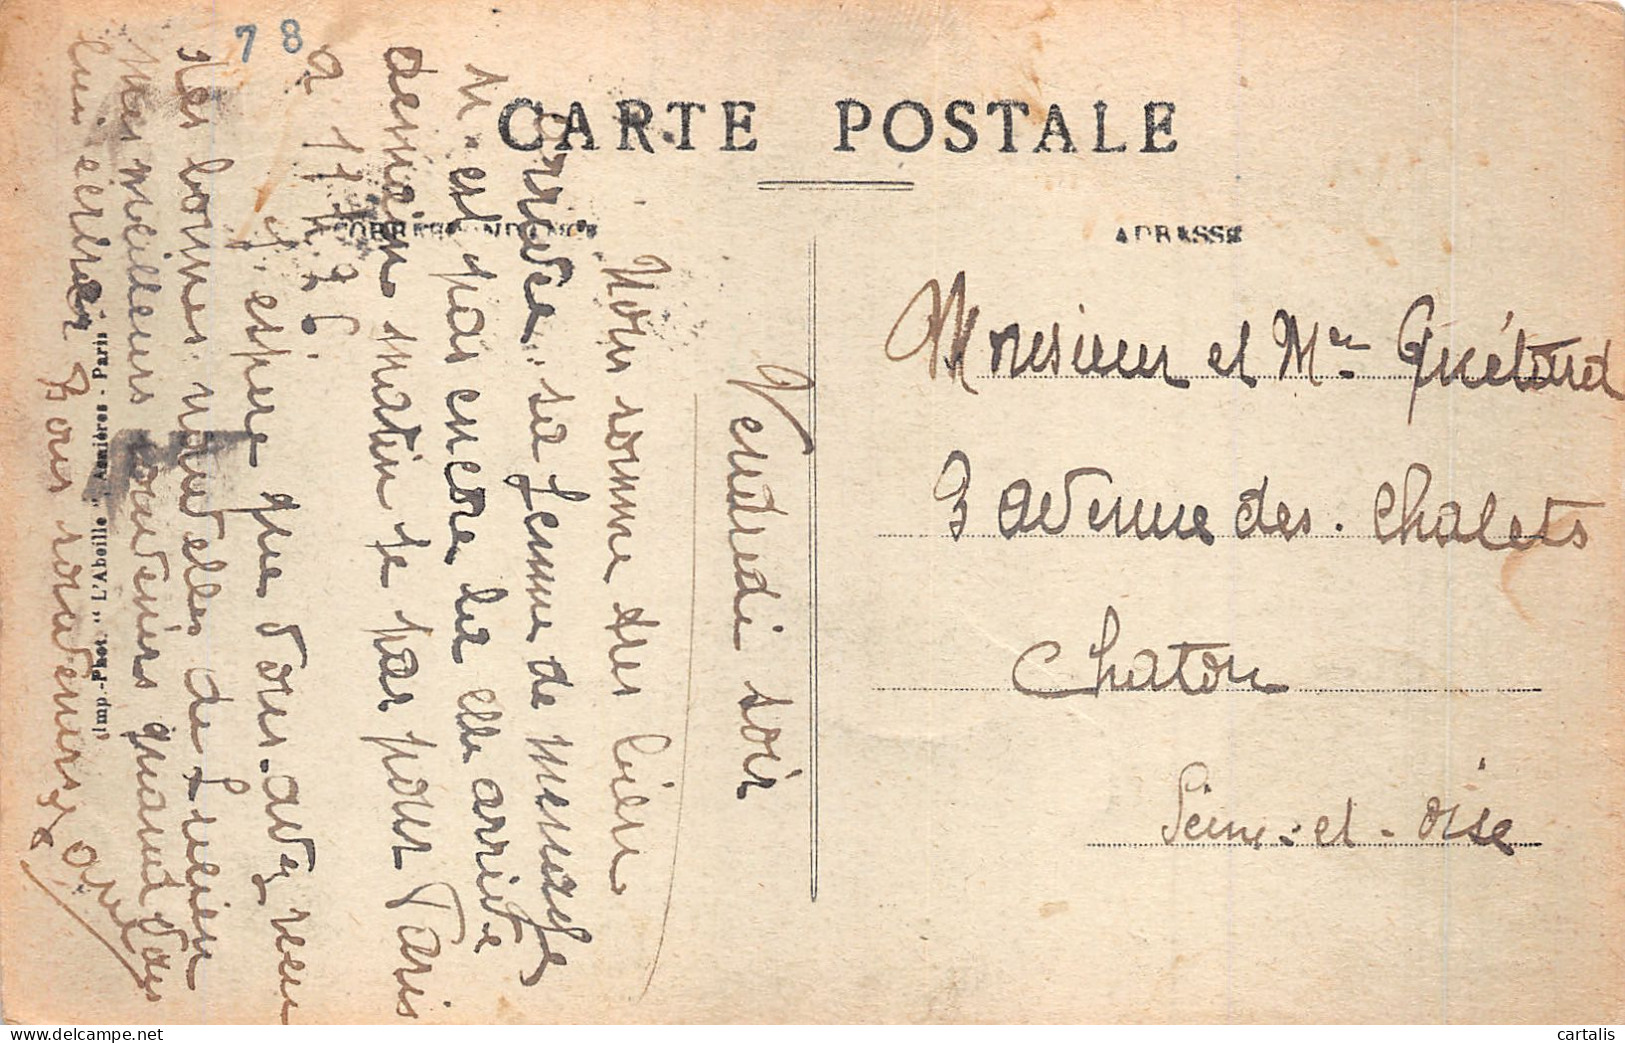 78
CARTE POSTALE
CORRESPONDANCE
ADRESSE
Vendredi soir
Nous sommes très bien
arrivée. sa femme de menage
n'est pas encore la elle arrive
demain matin je pars pour Paris
a 11 h 36
j'espere que vous avez reçu
des bonnes nouvelles de Lucien
Mes meilleurs souvenirs quand vous
lui écrirer Bons souvenirs
Monsieur et Mme Guétard
3 avenue des Chalets
Chatou
Seine-et-oise
Imp.-Phot. "L'Abeille", Asnières-Paris
cartalis